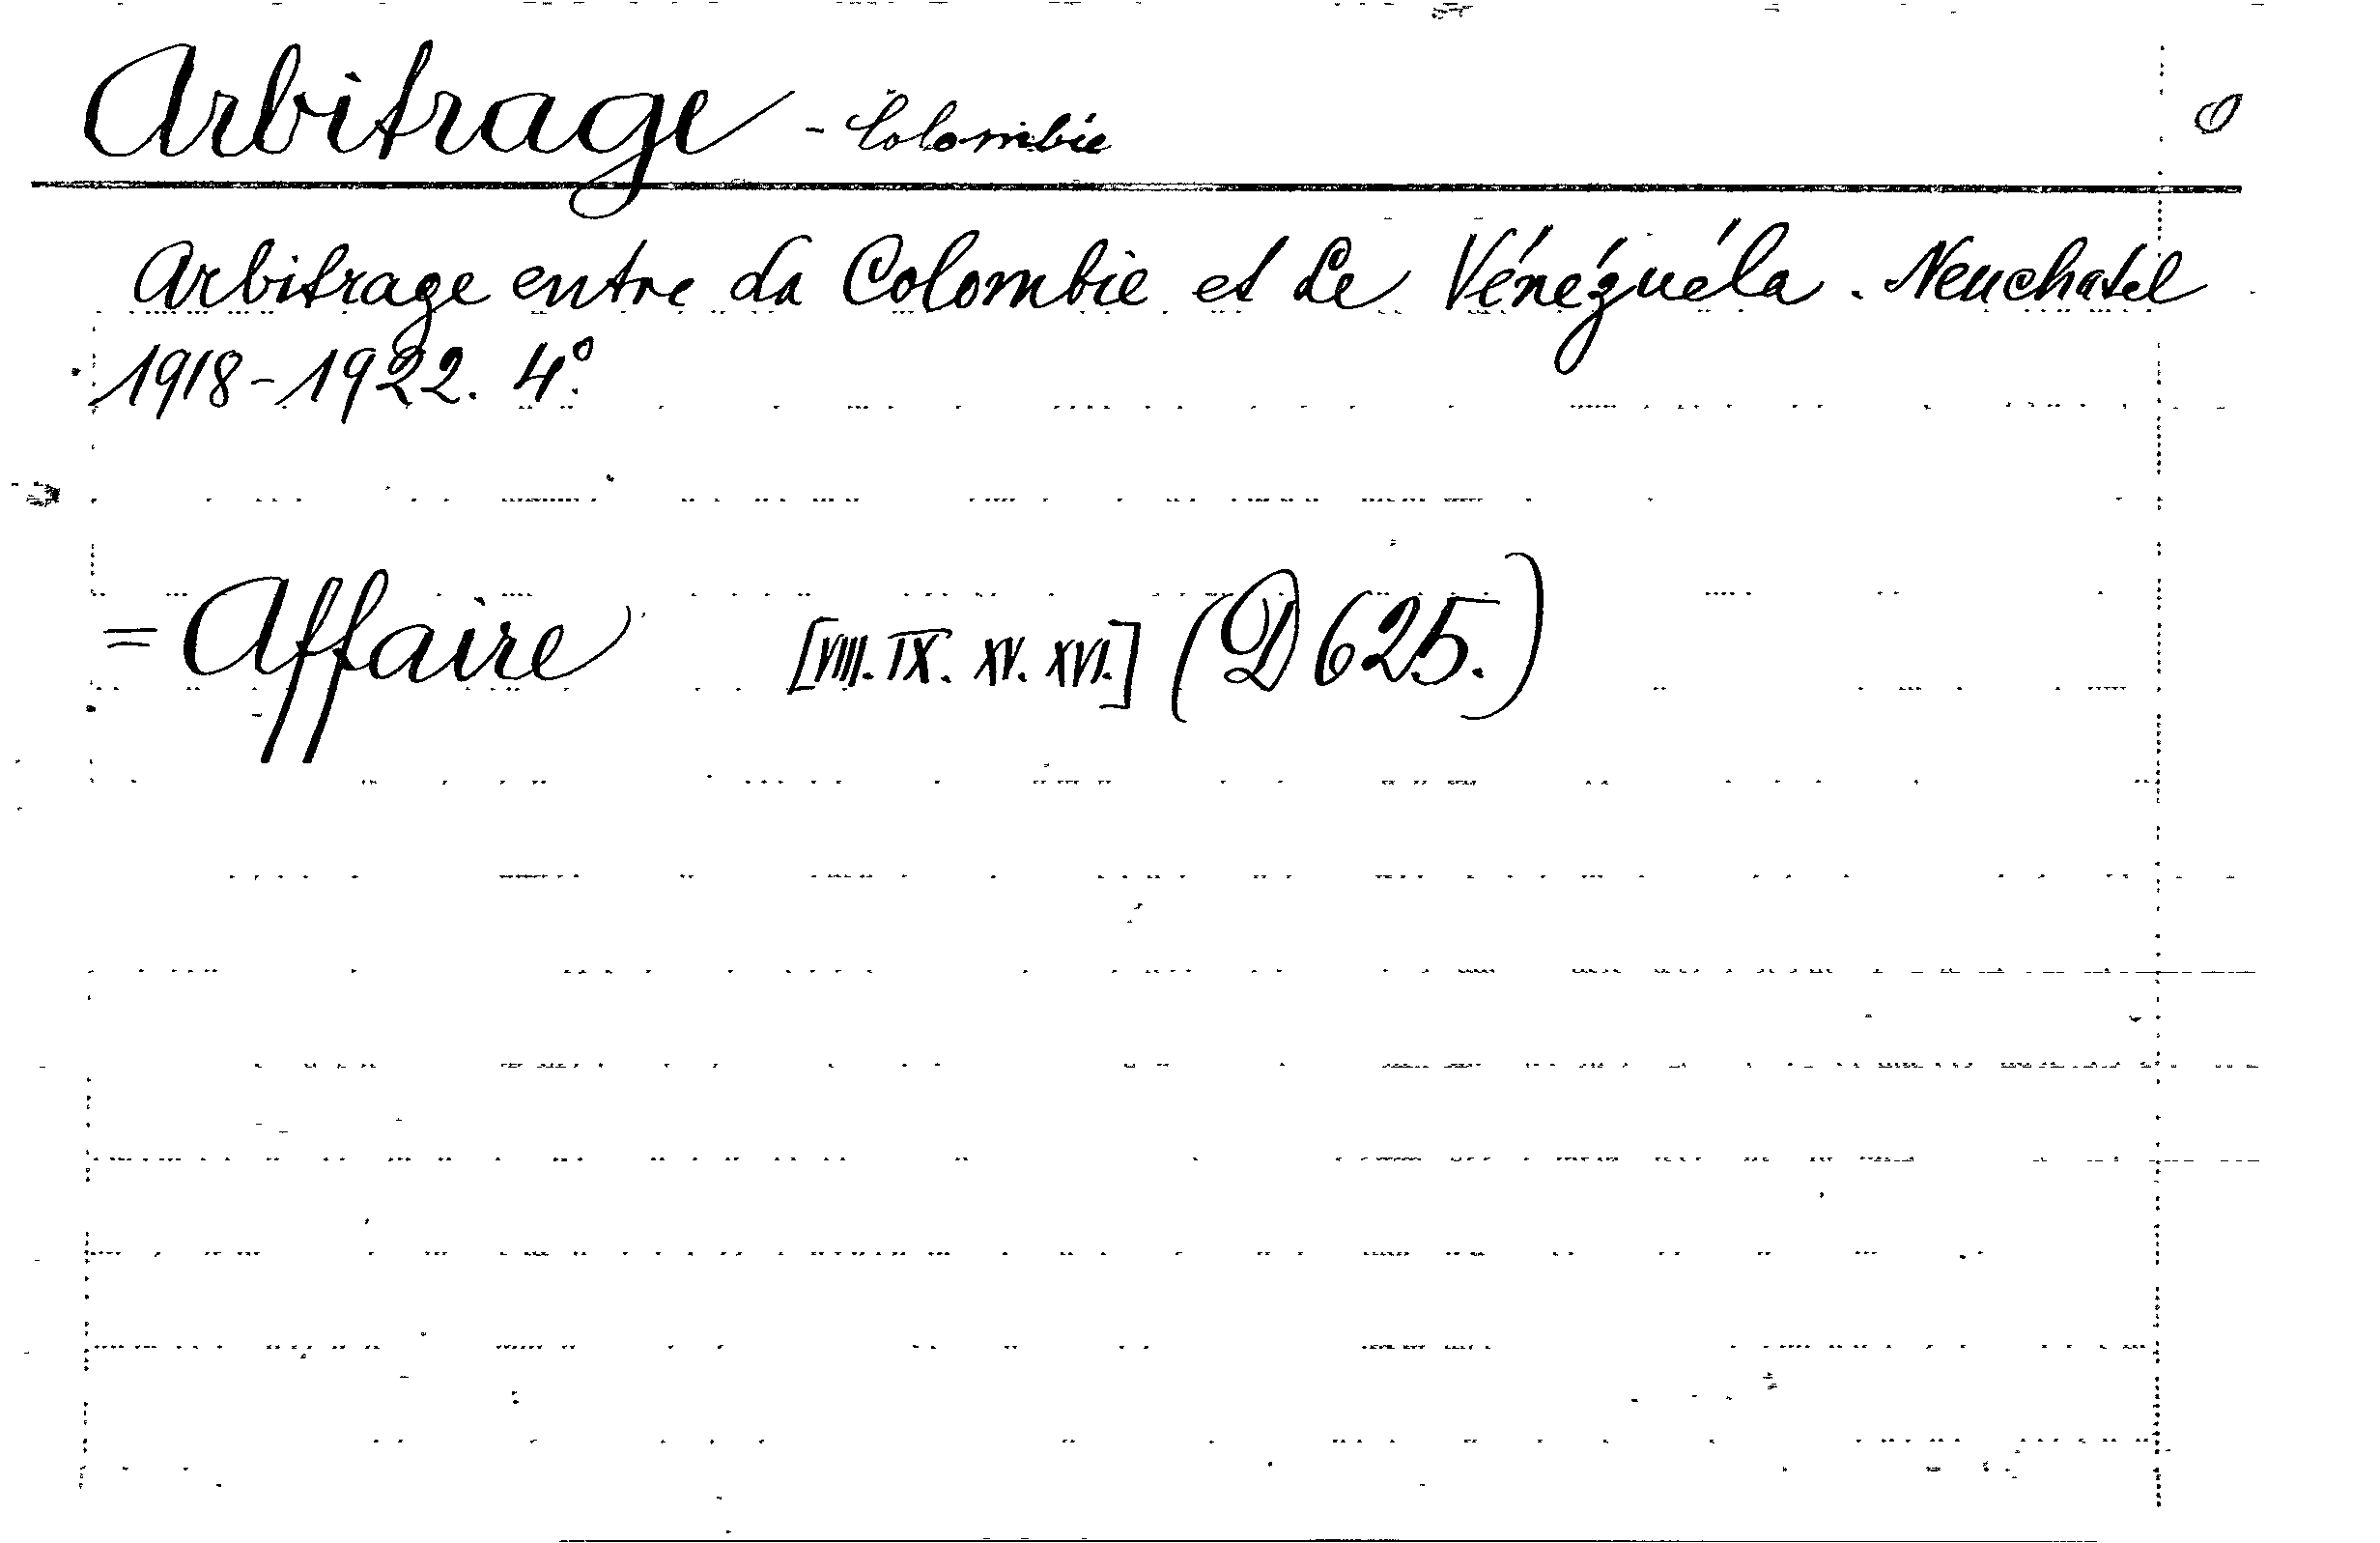 Arbitrage - Colombie
Arbitrage entre la Colombie et le Vénézuéla. Neuchatel
1918-1922. 4°.
= Affaire [VIII. IX. XV. XVI.] (D 625.)